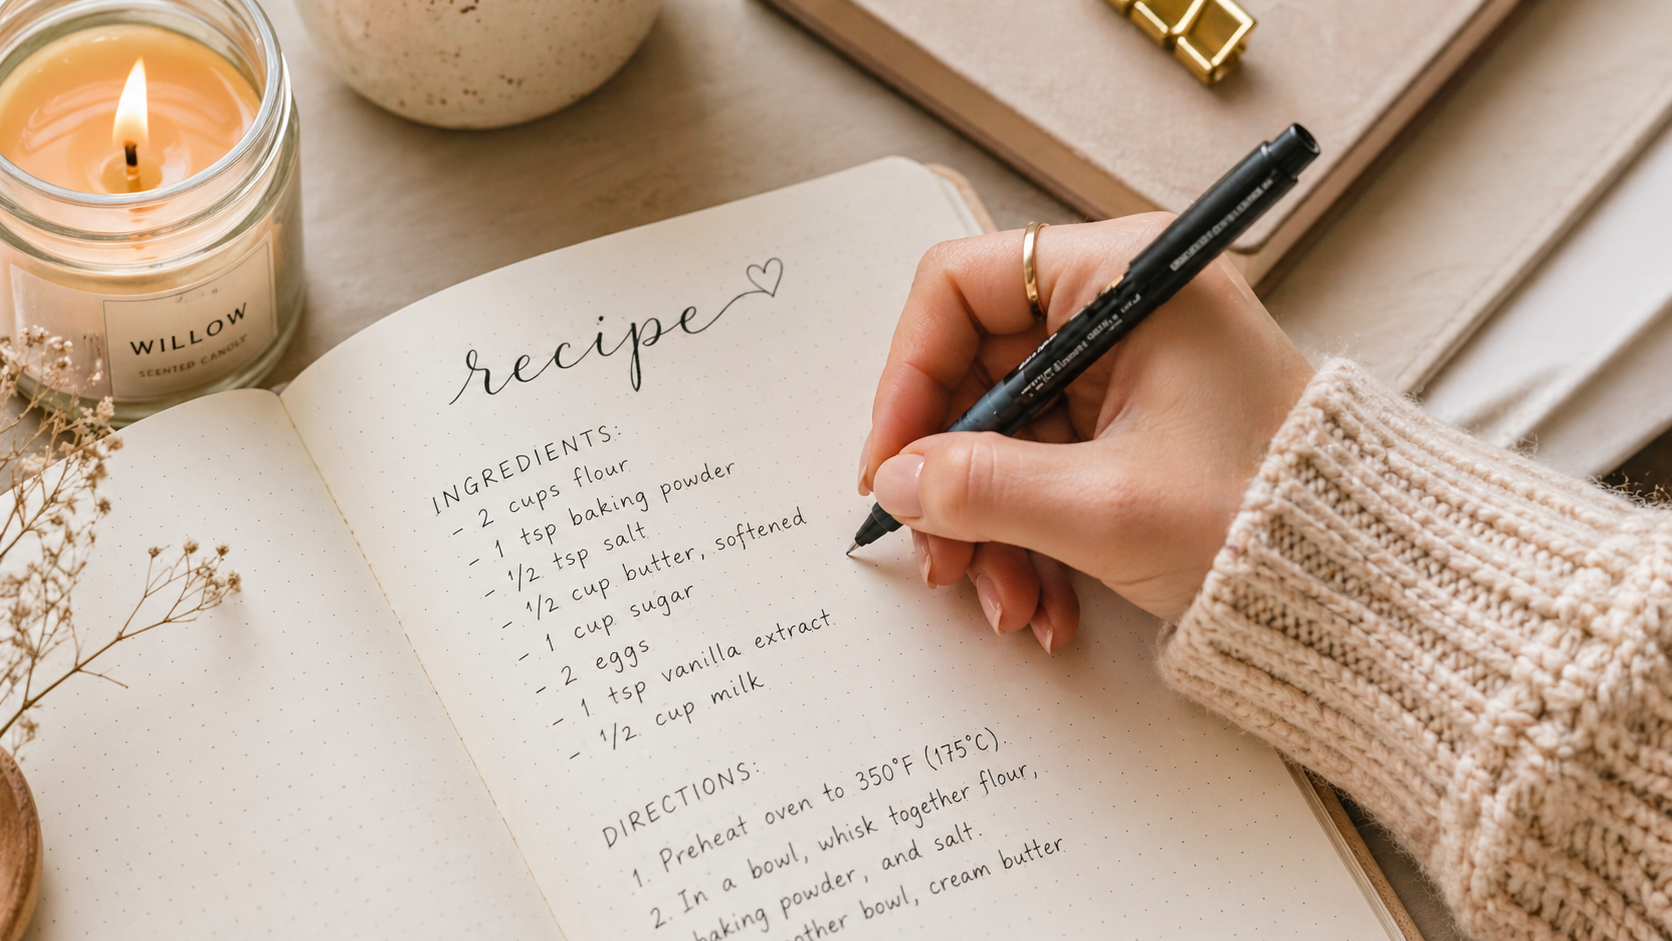 WILLOW
SCENTED CANDLE
recipe
INGREDIENTS:
- 2 cups flour
- 1 tsp baking powder
- 1/2 tsp salt
- 1/2 cup butter, softened
- 1 cup sugar
- 2 eggs
- 1 tsp vanilla extract
- 1/2 cup milk
DIRECTIONS:
1. Preheat oven to 350°F (175°C).
2. In a bowl, whisk together flour,
baking powder, and salt.
bowl, cream butter